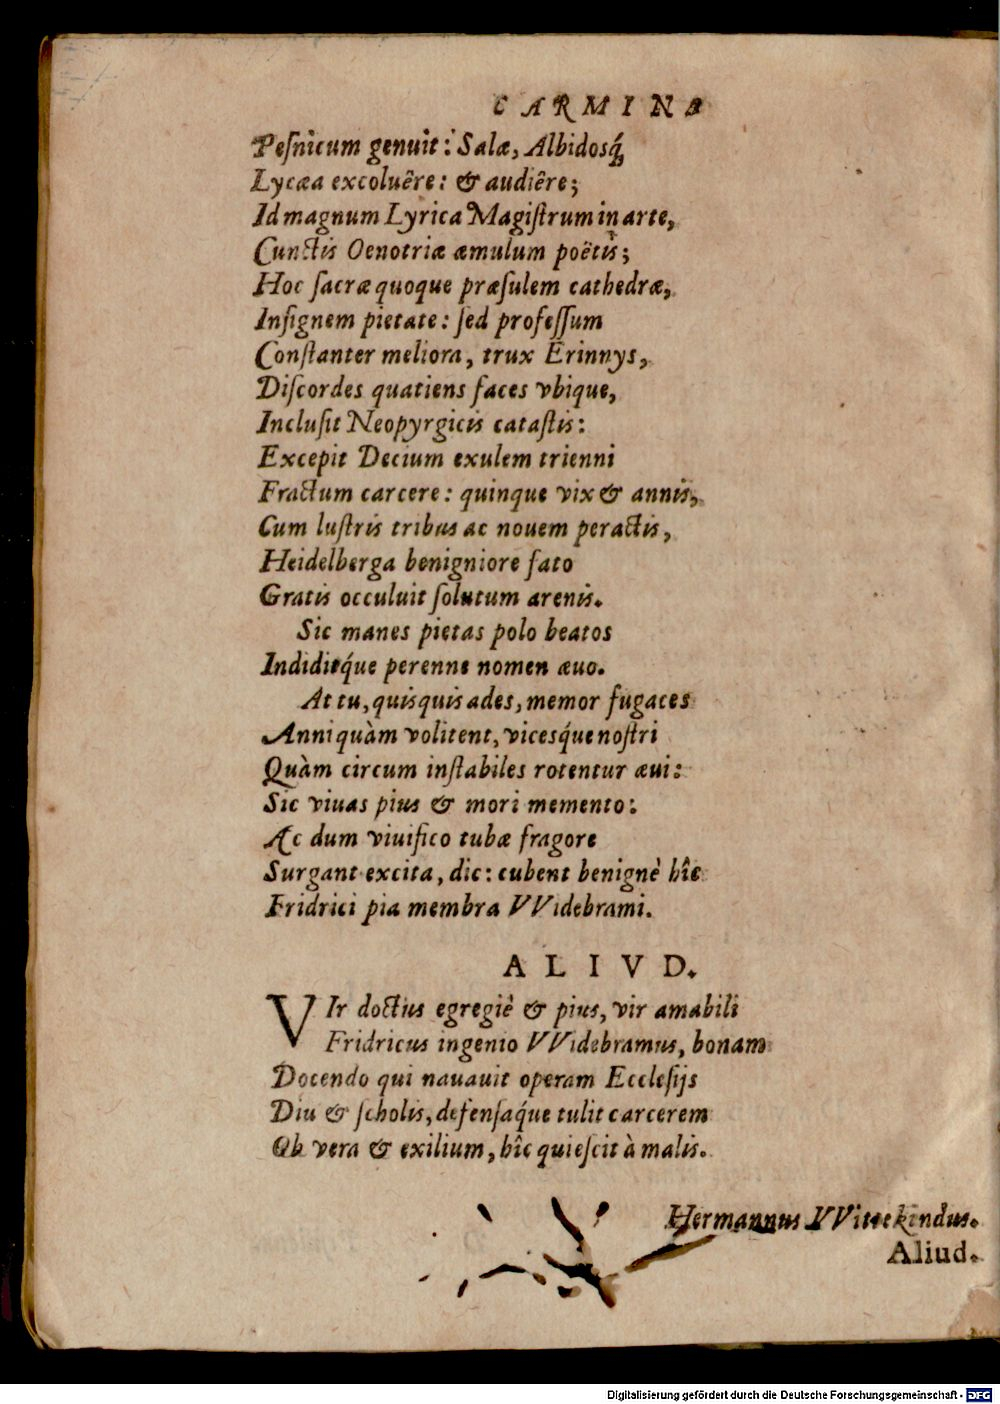 CARMINA
Pesnicum genuit: Salæ, Albidosq́;
Lycæa excoluêre: & audiêre;
Id magnum Lyrica Magistrum in arte,
Cunctis Oenotriæ æmulum poëtis;
Hoc sacræ quoque præsulem cathedræ,
Insignem pietate: sed professum
Constanter meliora, trux Erinnys,
Discordes quatiens faces vbique,
Inclusit Neopyrgicis catastis:
Excepit Decium exulem trienni
Fractum carcere: quinque vix & annis,
Cum lustris tribus ac nouem peractis,
Heidelberga benigniore fato
Gratis occuluit solutum arenis.
Sic manes pietas polo beatos
Indidit́que perenne nomen æuo.
At tu, quisquis ades, memor fugaces
Anni quàm volitent, vicesq́ue nostri
Quàm circum instabiles rotentur æui:
Sic viuas pius & mori memento:
Ac dum viuifico tubæ fragore
Surgant excita, dic: cubent benignè hîc
Fridrici pia membra VVidebrami.
ALIVD.
VIr doctius egregiè & pius, vir amabili
Fridricus ingenio VVidebramus, bonam
Docendo qui nauauit operam Ecclesijs
Diu & scholis, defensaq́ue tulit carcerem
Ob vera & exilium, hîc quiescit à malis.
Hermannus VVittekindus.
Aliud.
Digitalisierung gefördert durch die Deutsche Forschungsgemeinschaft - DFG